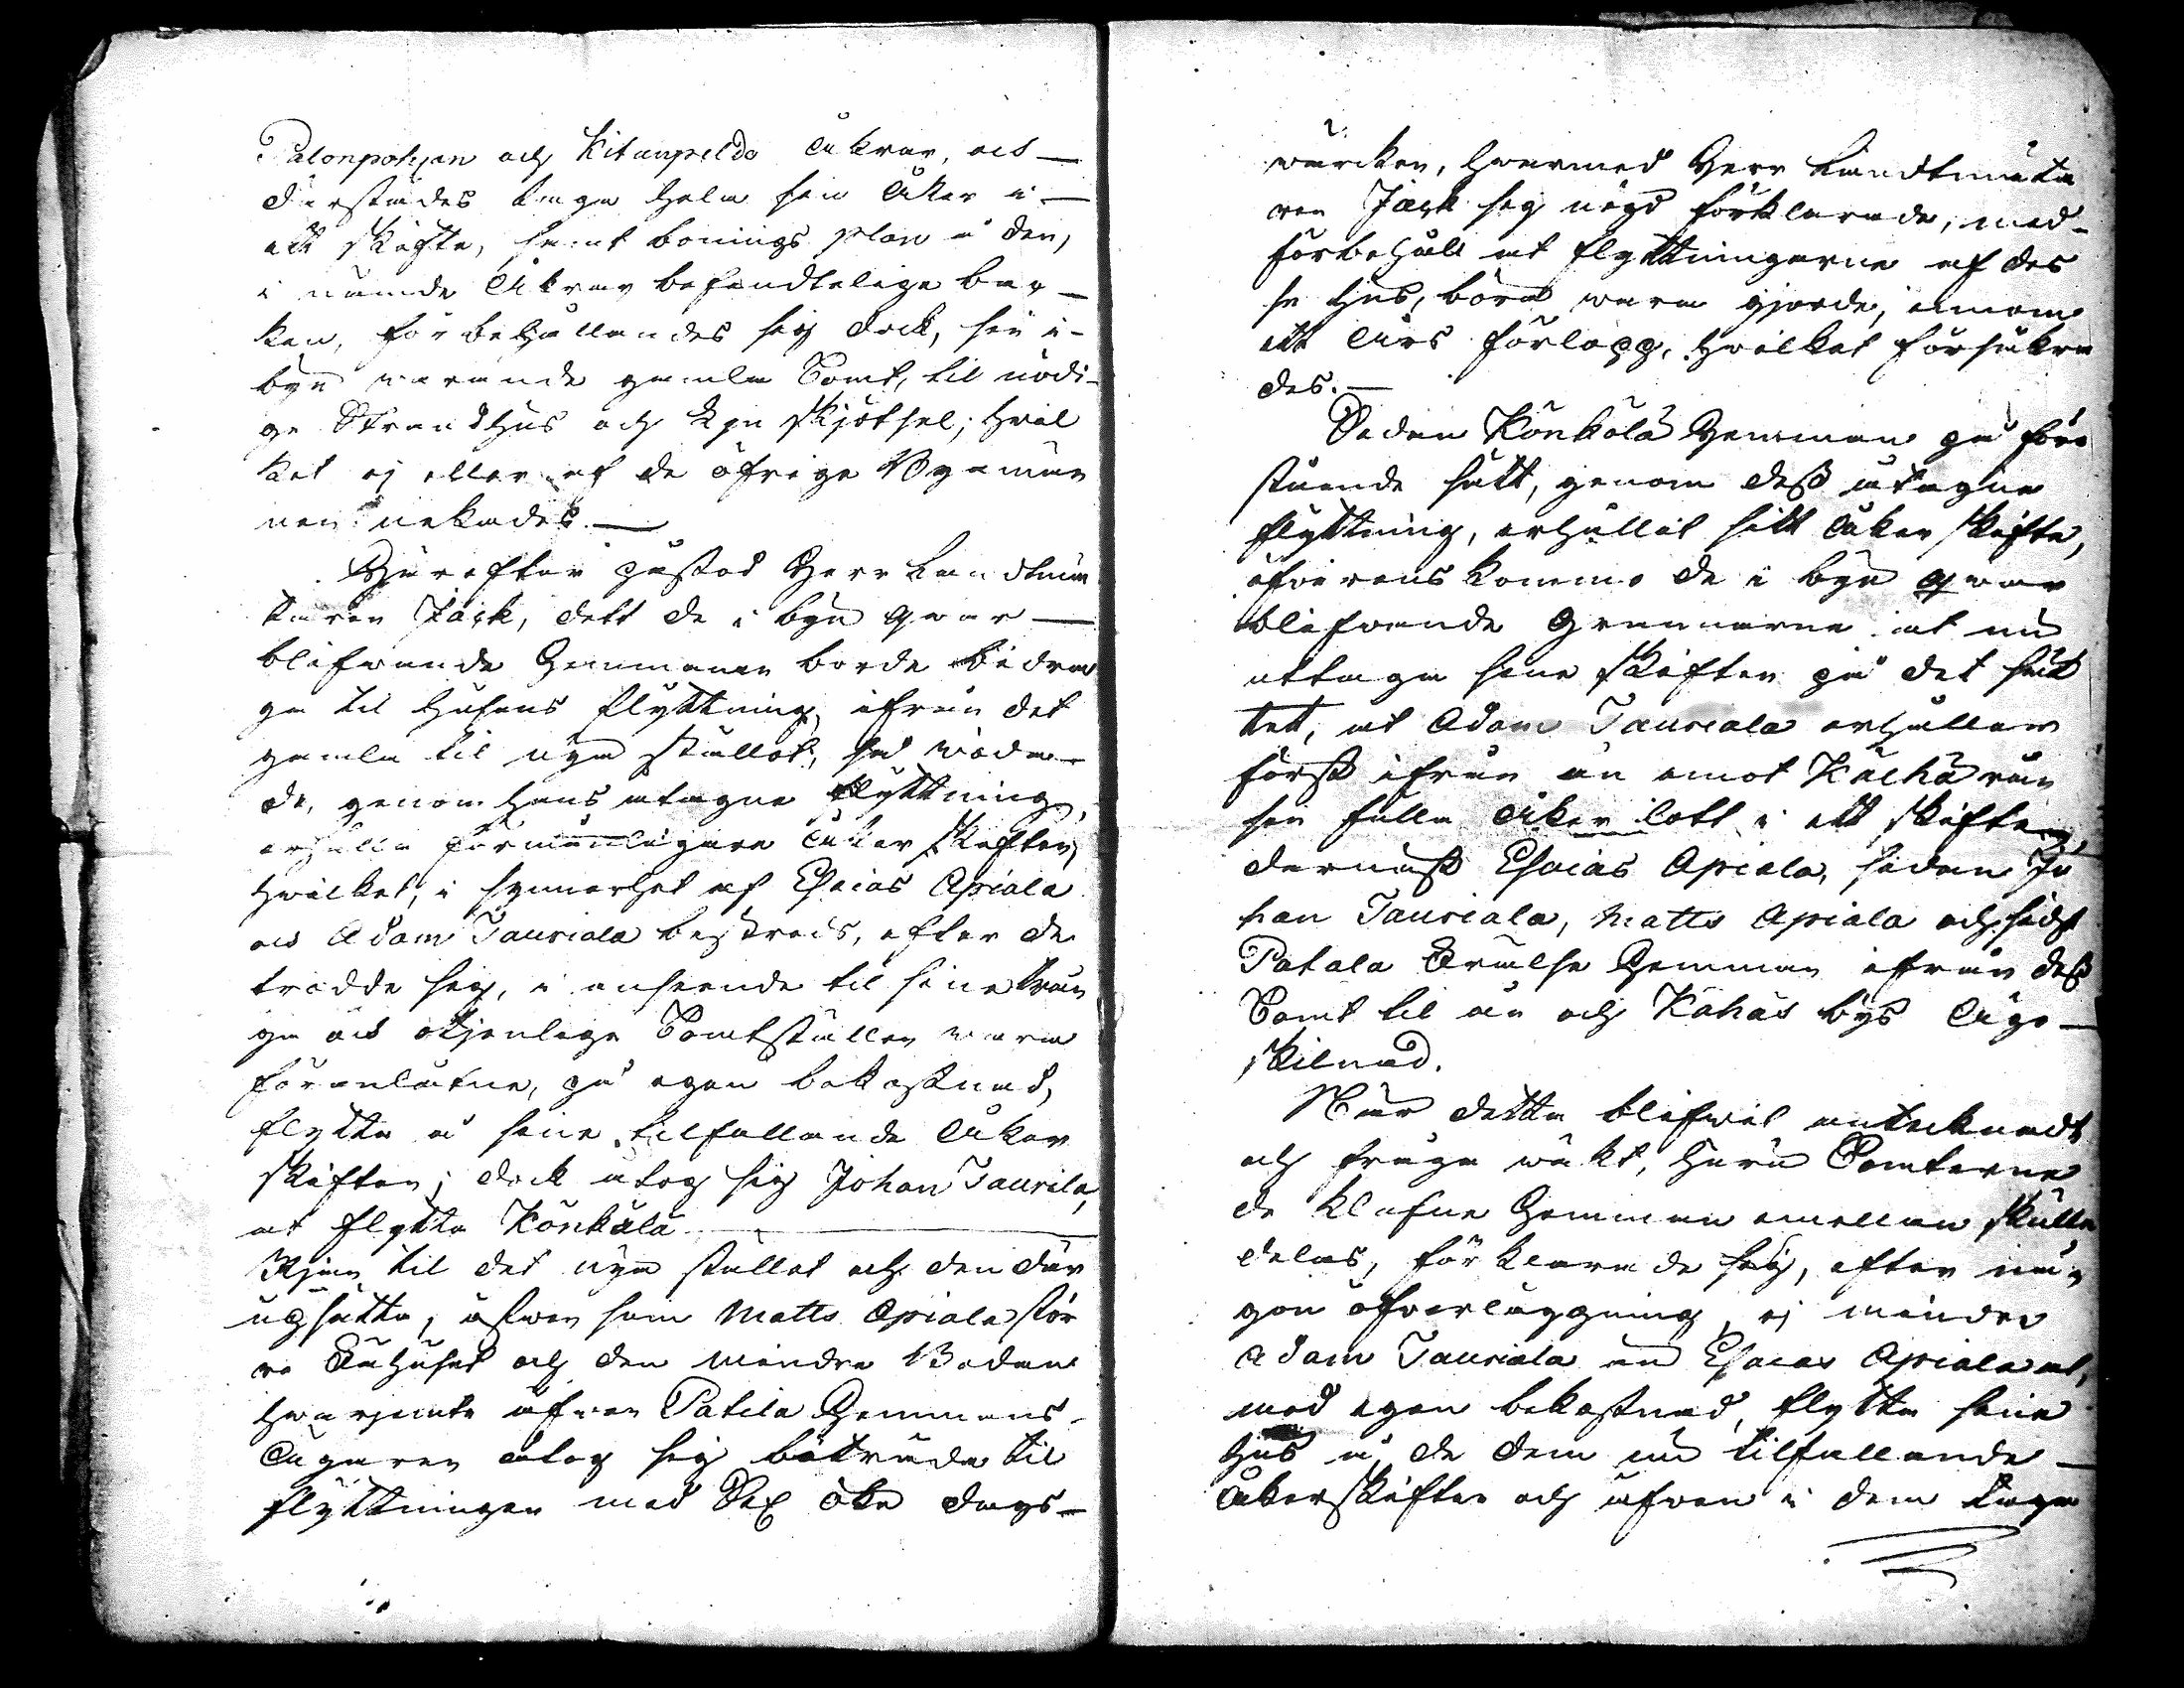 Palonpohjan och Kitunpeldo Åkrar, och —
därstädes taga hela sin Åker i —
ett skifte, samt bonings plan å den,
i nämde Åkrar befindtelige bac-
ken, förbehållandes sig dock, sin i
byn warande gamla Tomt, til nödi-
ge Strandhus och Kjn skjötsel; hvil
ket ej eller af de öfrige Byamän
nen nekades. —
Härefter påstod Herr Landtmä
taren Jack, det de i byn qvar —
blifwande Hemmanen borde bidra
ga til husens flyttning, ifrån det
gamla til nya stället, så wida —
de, genom hans åtagne flyttning,
erhålla förmånligare Åker skiften,
hvilket, i synnerhet af Esaias Apiala
och Adam Tauriala bestreds, efter de
trodde sig, i anseende til sine trån
ga och otjenlige Tomtställen wara
föranlåtne, på egen bekostnad,
flytta å sine tilfallande Åker
skiften; dock åtog sig Johan Taurila,
at flytta Könkälä —
Rjan til det nya stället och den där
upsätta, äfwen som Matts Apiala stör
re Fähuset och den mindre Boden
hwarjemte äfwen Patila Hemmans
Ägaren åtog sig biträda til
flyttningen med Sex öke dags —
wärcken, hwarmed Herr Landtmäta
ren Jack sig nögd förklarade, med
förbehåll at flyttningarne af des
se hus, böra wara gjorde, innom
ett Års förlopp, hvilket försäkra
des. —
Sedan Könkölä Hemman på före
stående sätt, genom dess åtagne
flyttning, erhållit sitt Åker skifte,
öfverens kommo de i byn qwar
blifwande Grannarne at nu
uttaga sine skiften på det sät
tet, at Adam Tauriala erhåller
först ifrån ån emot Kälhä rån
sin fulla Åker lott i ett skifte,
dernäst Esaias Apiala, sedan Jo
han Tauriala, Matts Apiala och sidst
Patala Frälse Hemman ifrån dess
Tomt til ån och Kähäs bys Ägo —
skilnad.
När detta blifwit antecknadt
och fråga wäkt, huru Tomterne
de klufne Hemman emellan skulle
delas, förklarade sig, efter nå-
gon öfverläggning, ej mindre
Adam Tauriala än Esaias Apiala at,
med egen bekostnad, flytta sine
hus å de dem nu tilfallande —
Åkerskiften och äfwen i dem taga